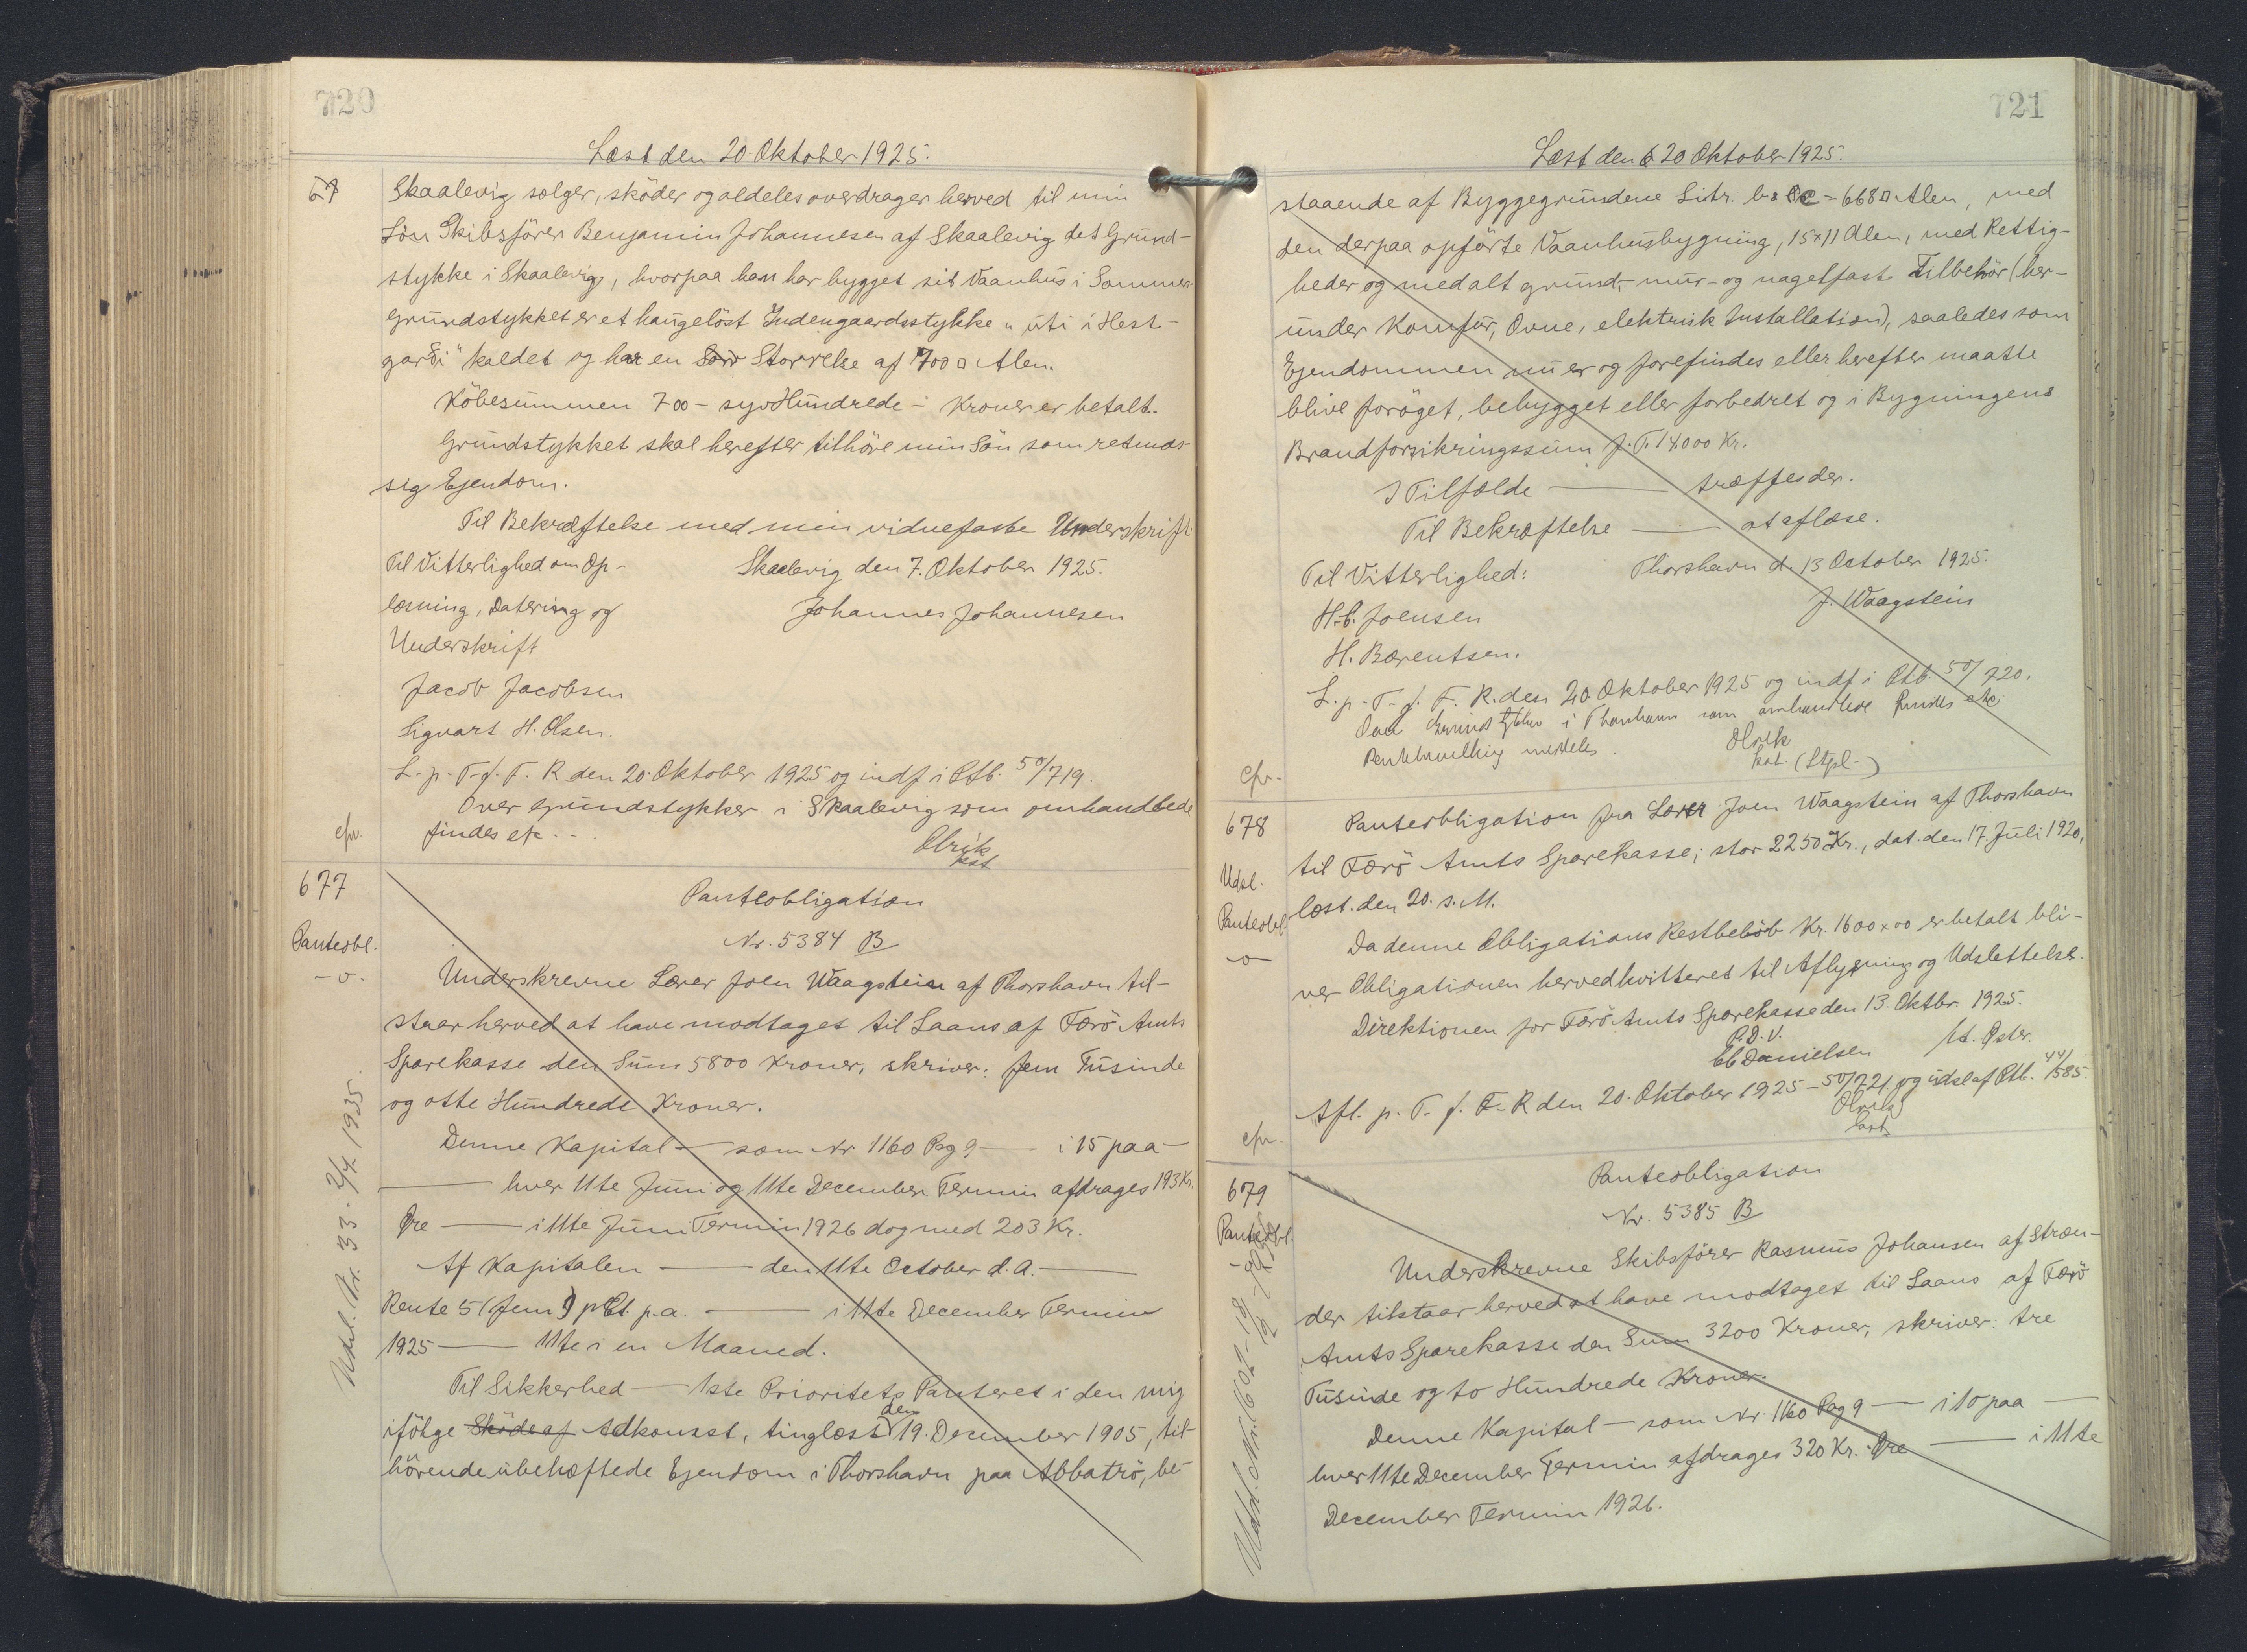 720
Læst den 20. Oktober 1925.
Skaalevig sælger, sköder og aldeles overdrager herved til min
Sön Skibsförer Benjamin Johannesen af Skaalevig det Grund-
stykke i Skaalevig, hvorpaa han har bygget sit Vaanhus i Sommer.
Grundstykket er et haugelöst Indengaardsstykke „ úti i Hest-
gardi" kaldet og har en Storrelse af 700 □ Alen.
Köbesummen 700 - syv Hundrede - Kroner er betalt.
Grundstykket skal herefter tilhöre min Sön som retmæs-
sig Ejendom.
Til Bekræftelse med min vidnefaste Underskrift
Til Vitterlighed om Op-
læsning, Datering og
Underskrift
Skaalevig den 7. Oktober 1925.
Johannes Johannesen
Jacob Jacobsen
Sigvart H. Olsen.
L. p. T. f. F. R. den 20. Oktober 1925 og indf. i Ptb. 50/719.
Over Grundstykker i Skaalevig som omhandlede
findes etc. . .
Olrik
kst
cfr.
677
Panteobl.
- o -
Udsl. Nr. 33. 2/4 1935.
Panteobligation
Nr. 5384 B
Underskrevne Lærer Joen Waagstein af Thorshavn til-
staar herved at have modtaget til Laans af Færö Amts
Sparekasse den Sum 5800 Kroner, skriver: fem Tusinde
og otte Hundrede Kroner.
Denne Kapital — som Nr 1160 Pag 9 — i 15 paa —
— hver 11te Juni og 11te December Termin afdrages 193 Kr.
Øre — i 11te Juni Termin 1926 dog med 203 Kr.
Af Kapitalen — den 11te October d. A. —
Rente 5 (fem) pCt. p.a. — i 11te December Termin
1925 — 11te i en Maaned.
Til Sikkerhed — 1ste Prioritets Panteret i den mig
ifölge Sköde af Adkomst, tinglæst den 19. December 1905, til-
hörende ubehæftede Ejendom i Thorshavn paa Abbatrö, be-
721
Læst den 20 Oktober 1925.
staaende af Byggegrundene Litr. b & c = 668 □ Alen, med
den derpaa opförte Vaanhusbygning, 15 x 11 Alen, med Rettig-
heder og med alt grund-, mur- og nagelfast Tilbehör (her-
under Komfur, Ovne, elektrisk Installation), saaledes som
Ejendommen nu er og forefindes eller herefter maatte
blive foröget, bebygget eller forbedret og i Bygningens
Brandforsikringssum f. T. 14000 Kr.
I Tilfælde — træffes der.
Til Bekræftelse — at aflæse.
Til Vitterlighed:
Thorshavn d. 13 October 1925.
J. Waagstein
H. C. Joensen
H. Bærentsen.
L. p. T. f. F. R. den 20 Oktober 1925 og indf. i Ptb. 50/720.
Over Grundstykker i Thorshavn som omhandlede findes etc
meddeles.
Olrik
kst. (Stpl.)
cfr.
678
Udsl.
Panteobl.
- o -
Panteobligation fra Lærer Joen Waagstein af Thorshavn
til Færö Amts Sparekasse, stor 2250 Kr., dat. den 17 Juli 1920,
læst. den 20. s. M.
Da denne Obligations Restbelöb Kr. 1600 x 00 er betalt bli-
ver Obligationen herved kvitteret til Aflysning og Udslettelse.
Direktionen for Færö Amts Sparekasse den 13. Oktbr. 1925.
P. D. V.
Danielsen
Afl. p. T. f. F. R den 20. Oktober 1925 - 50/721 og udsl af Ptb. 44/585.
Olrik
kst.
cfr.
679
Panteobl.
Panteobligation
Nr. 5385 B
Underskrevne Skibsförer Rasmus Johansen af Stræn-
der tilstaar herved at have modtaget til Laans af Færö
Amts Sparekasse den Sum 3200 Kroner, skriver: tre
Tusinde og to Hundrede Kroner.
Denne Kapital — som Nr. 1160 Pag 9 — i 10 paa —
hver 11te December Termin afdrages 320 Kr. Øre — i 11te
December Termin 1926.